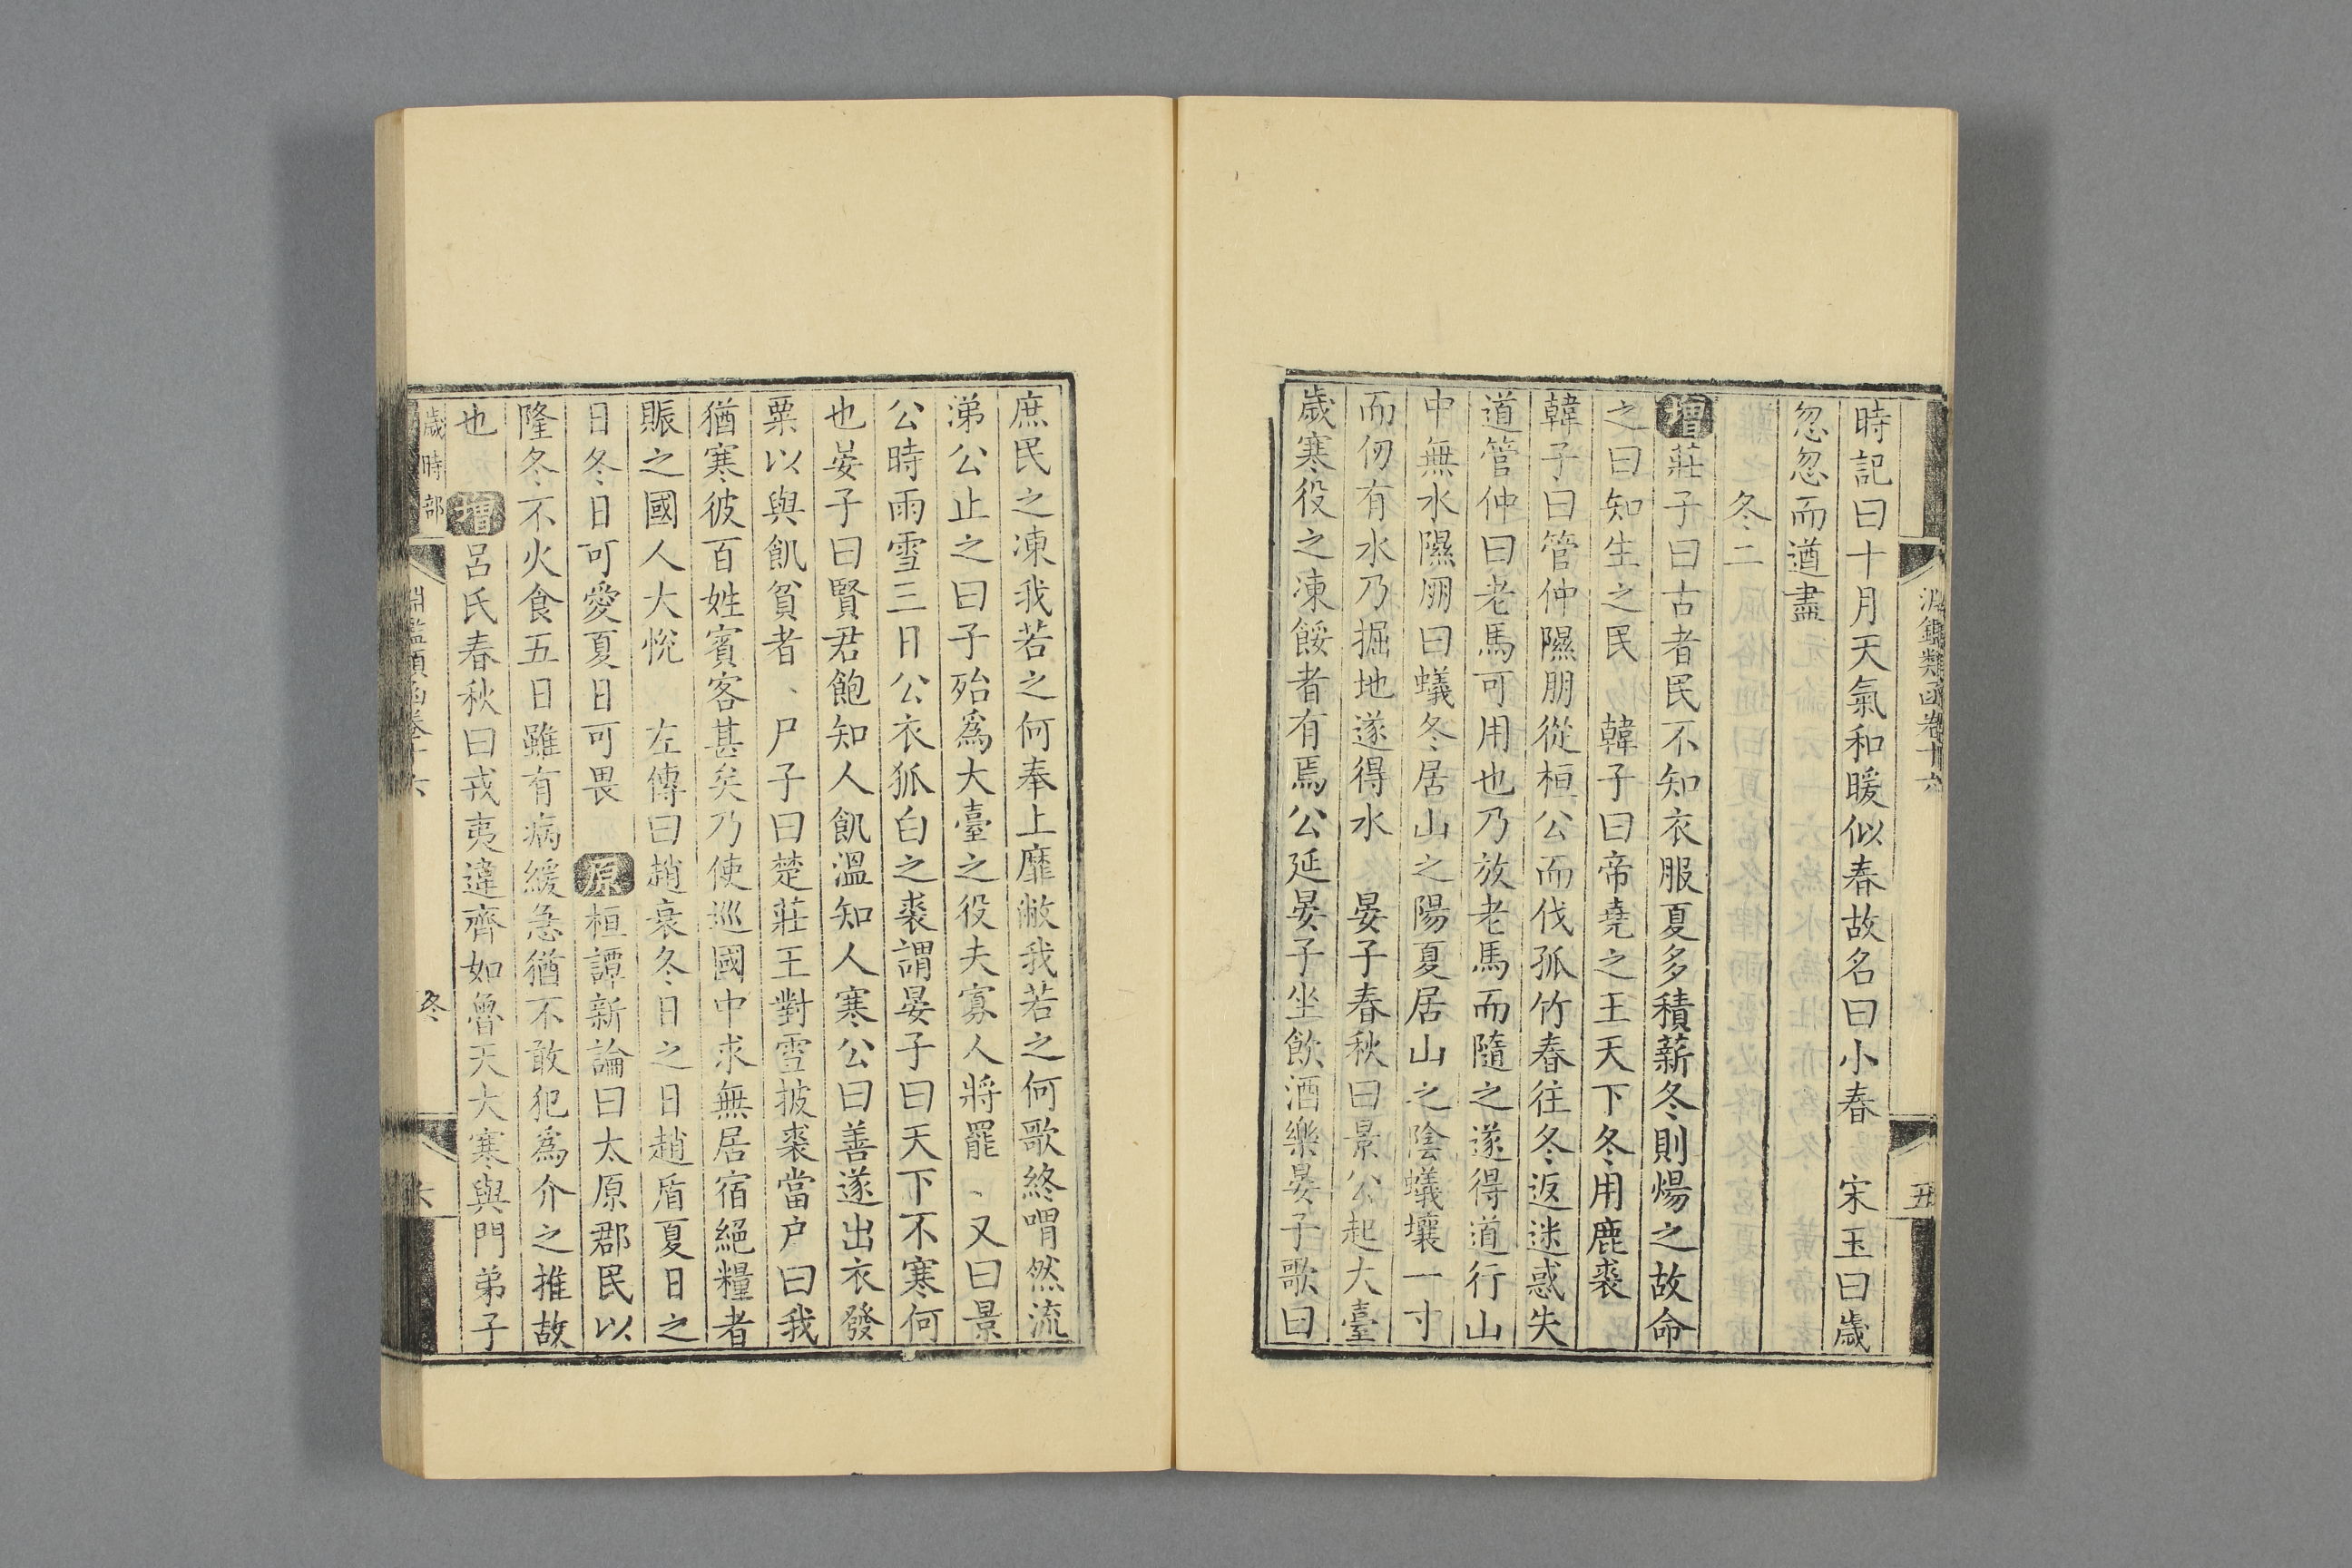 淵鑑類函卷十六
五
時記曰十月天氣和暖似春故名曰小春 宋玉曰歲
忽忽而遒盡
冬二
增莊子曰古者民不知衣服夏多積薪冬則煬之故命
之曰知生之民 韓子曰帝堯之王天下冬用鹿裘
韓子曰管仲隰朋從桓公而伐孤竹春往冬返迷惑失
道管仲曰老馬可用也乃放老馬而隨之遂得道行山
中無水隰朋曰蟻冬居山之陽夏居山之陰蟻壤一寸
而仞有水乃掘地遂得水 晏子春秋曰景公起大臺
歲寒役之凍餒者有焉公延晏子坐飲酒樂晏子歌曰
庶民之凍我若之何奉上靡敝我若之何歌終喟然流
涕公止之曰子殆爲大臺之役夫寡人將罷、又曰景
公時雨雪三日公衣狐白之裘謂晏子曰天下不寒何
也晏子曰賢君飽知人飢溫知人寒公曰善遂出衣發
粟以與飢貧者、尸子曰楚莊王對雪披裘當户曰我
猶寒彼百姓賓客甚矣乃使巡國中求無居宿絕糧者
賑之國人大悅 左傳曰趙衰冬日之日趙盾夏日之
日冬日可愛夏日可畏 原桓譚新論曰太原郡民以
隆冬不火食五日雖有病緩急猶不敢犯爲介之推故
也 增呂氏春秋曰戎夷違齊如魯天大寒與門弟子
歲時部
淵鑑類函卷十六
冬
六